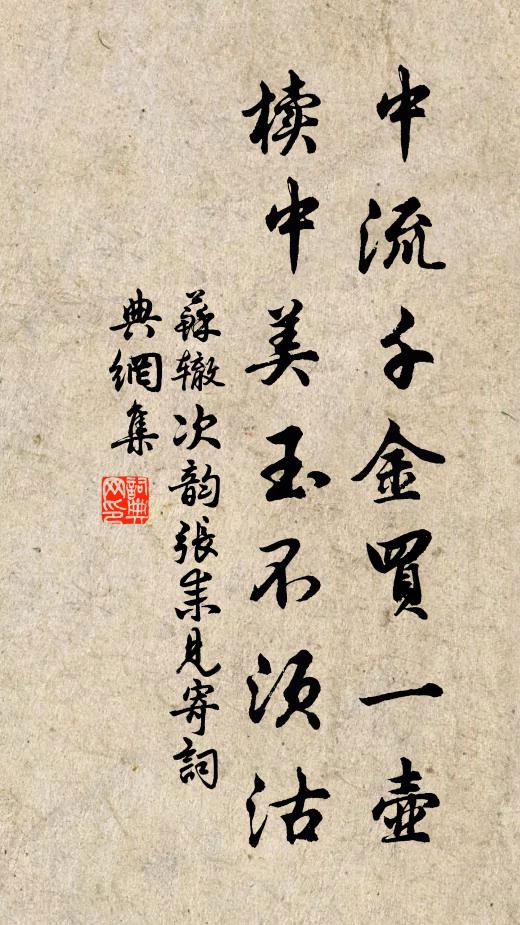 中流千金買一壺
櫝中美玉不須沽
蘇轍次韵張耒見寄詞
典網集
詞典網印